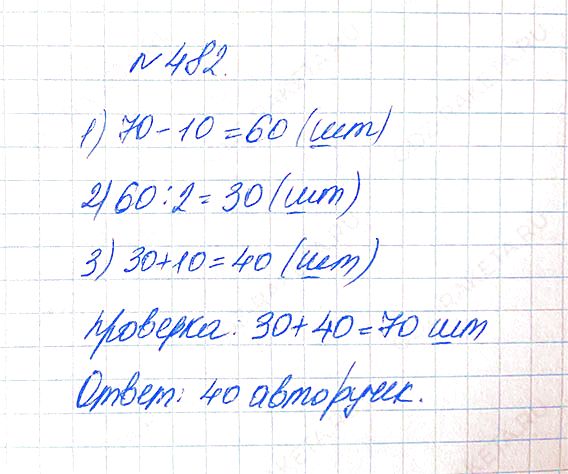 №482.
1) 70-10=60 (шт)
2) 60:2=30 (шт)
3) 30+10=40 (шт)
Проверка: 30+40=70 шт
Ответ: 40 авторучек.